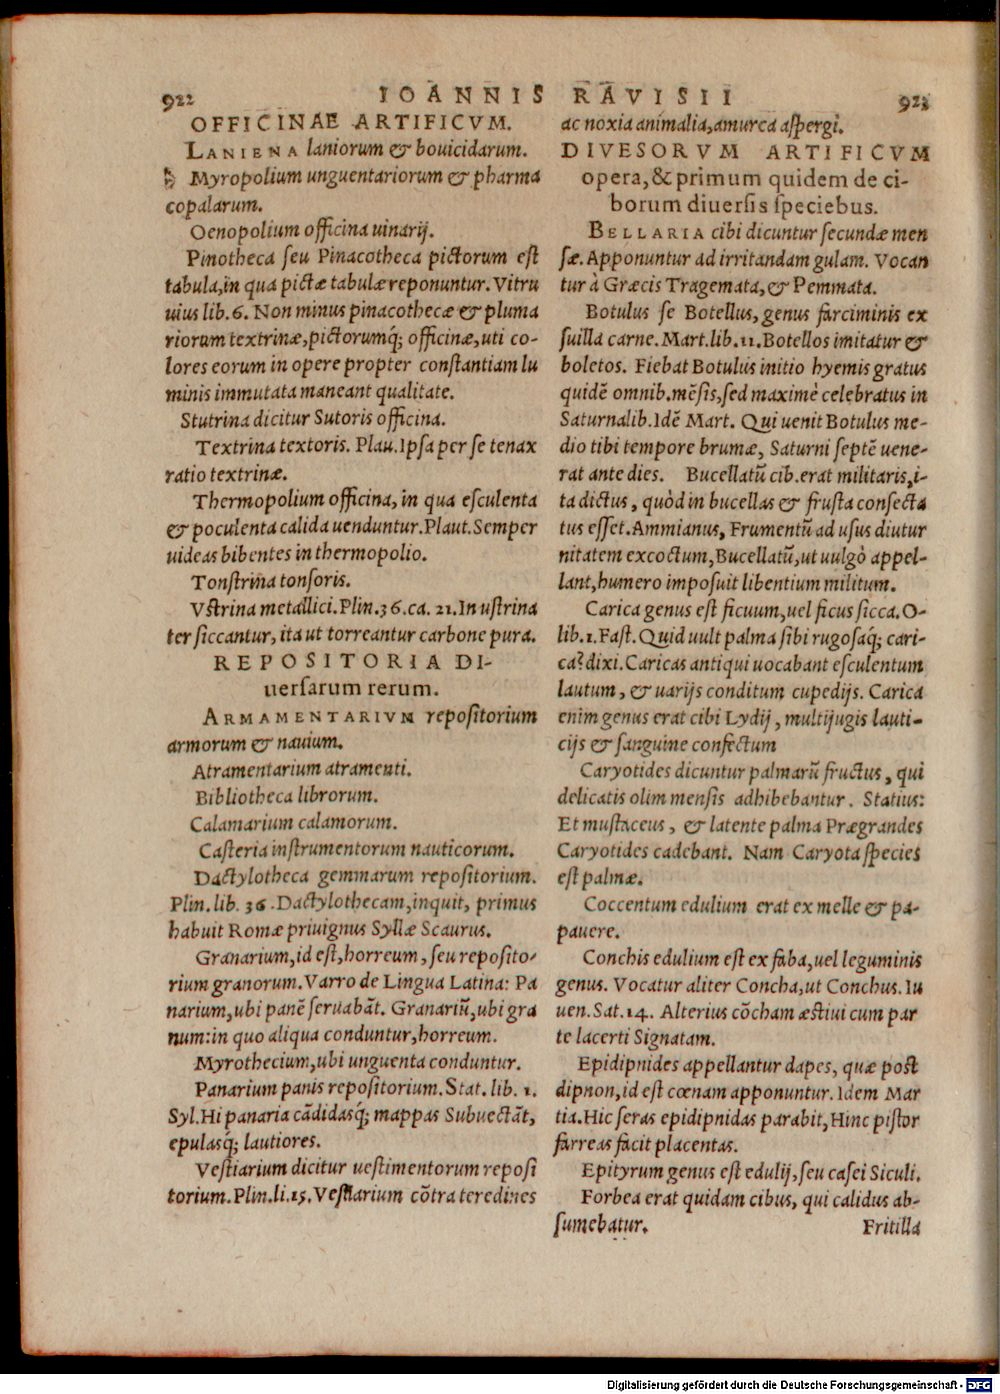 922 IOANNIS RAVISII 923
OFFICINAE ARTIFICVM.
LANIENA laniorum & bouicidarum.
Myropolium unguentariorum & pharma
copalarum.
Oenopolium officina uinarij.
Pinotheca seu Pinacotheca pictorum est
tabula, in qua pictæ tabulæ reponuntur. Vitru
uius lib. 6. Non minus pinacothecæ & pluma
riorum textrinæ, pictorumq́; officinæ, uti co-
lores eorum in opere propter constantiam lu
minis immutata maneant qualitate.
Stutrina dicitur Sutoris officina.
Textrina textoris. Plau. Ipsa per se tenax
ratio textrinæ.
Thermopolium officina, in qua esculenta
& poculenta calida uenduntur. Plaut. Semper
uideas bibentes in thermopolio.
Tonstrina tonsoris.
Vstrina metallici. Plin. 36. ca. 21. In ustrina
ter siccantur, ita ut torreantur carbone pura.
REPOSITORIA DI-
uersarum rerum.
ARMAMENTARIVM repositorium
armorum & nauium.
Atramentarium atramenti.
Bibliotheca librorum.
Calamarium calamorum.
Casteria instrumentorum nauticorum.
Dactylotheca gemmarum repositorium.
Plin. lib. 36. Dactylothecam, inquit, primus
habuit Romæ priuignus Syllæ Scaurus.
Granarium, id est, horreum, seu reposito-
rium granorum. Varro de Lingua Latina: Pa
narium, ubi panē seruabāt. Granariū, ubi gra
num: in quo aliqua conduntur, horreum.
Myrothecium, ubi unguenta conduntur.
Panarium panis repositorium. Stat. lib. 1.
Syl. Hi panaria cādidasq́; mappas Subuectāt,
epulasq́; lautiores.
Vestiarium dicitur uestimentorum reposi
torium. Plin. li. 15. Vestiarium cōtra teredines
ac noxia animalia, amurca aspergi.
DIVESORVM ARTIFICVM
opera, & primum quidem de ci-
borum diuersis speciebus.
BELLARIA cibi dicuntur secundæ men
sæ. Apponuntur ad irritandam gulam. Vocan
tur à Græcis Tragemata, & Pemmata.
Botulus se Botellus, genus farciminis ex
suilla carne. Mart. lib. 11. Botellos imitatur &
boletos. Fiebat Botulus initio hyemis gratus
quidē omnib. mēsis, sed maximè celebratus in
Saturnalib. Idē Mart. Qui uenit Botulus me-
dio tibi tempore brumæ, Saturni septē uene-
rat ante dies. Bucellatū cib. erat militaris, i-
ta dictus, quòd in bucellas & frusta consecta
tus esset. Ammianus, Frumentū ad usus diutur
nitatem excoctum, Bucellatū, ut uulgò appel-
lant, humero imposuit libentium militum.
Carica genus est ficuum, uel ficus sicca. O-
lib. 1. Fast. Quid uult palma sibi rugosaq́; cari-
ca? dixi. Caricas antiqui uocabant esculentum
lautum, & uarijs conditum cupedijs. Carica
enim genus erat cibi Lydij, multijugis lauti-
cijs & sanguine confectum
Caryotides dicuntur palmarū fructus, qui
delicatis olim mensis adhibebantur. Statius:
Et mustaceus, & latente palma Prægrandes
Caryotides cadebant. Nam Caryota species
est palmæ.
Coccentum edulium erat ex melle & pa-
pauere.
Conchis edulium est ex faba, uel leguminis
genus. Vocatur aliter Concha, ut Conchus. Iu
uen. Sat. 14. Alterius cōcham æstiui cum par
te lacerti Signatam.
Epidipnides appellantur dapes, quæ post
dipnon, id est cœnam apponuntur. Idem Mar
tia. Hic seras epidipnidas parabit, Hinc pistor
farreas facit placentas.
Epityrum genus est edulij, seu casei Siculi.
Forbea erat quidam cibus, qui calidus ab-
sumebatur. Fritilla
Digitalisierung gefördert durch die Deutsche Forschungsgemeinschaft - DFG